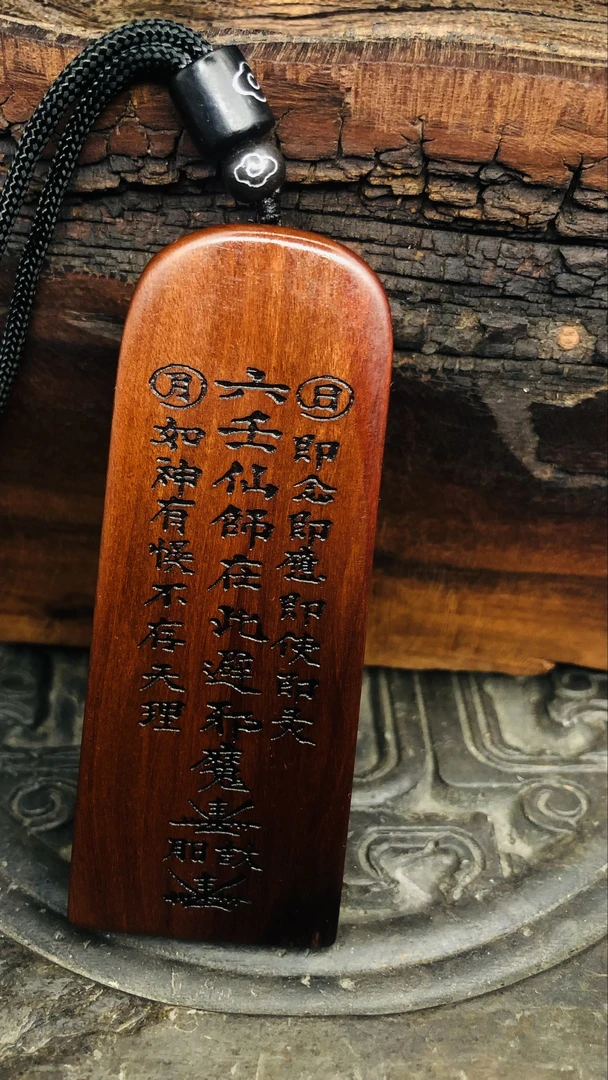 日即念即即使即是
六壬仙師在此避邪魔
月如神有悮不存天理